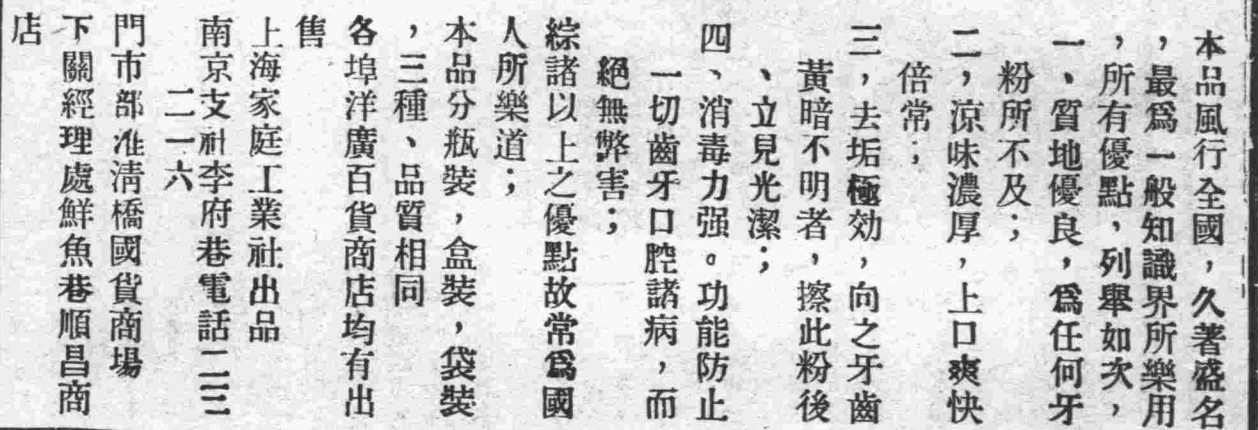 本品風行全國，久著盛名
，最爲一般知識界所樂用
，所有優點，列舉如次，
一、質地優良，爲任何牙
粉所不及；
二，涼味濃厚，上口爽快
倍常；
三，去垢極効，向之牙齒
黃暗不明者，擦此粉後
、立見光潔；
四、消毒力强。功能防止
一切齒牙口腔諸病，而
絕無弊害；
綜諸以上之優點故常爲國
人所樂道；
本品分瓶裝，盒裝，袋裝
，三種、品質相同
各埠洋廣百貨商店均有出
售
上海家庭工業社出品
南京支社李府巷電話二三
二一六
門市部淮清橋國貨商場
下關經理處鮮魚巷順昌商
店